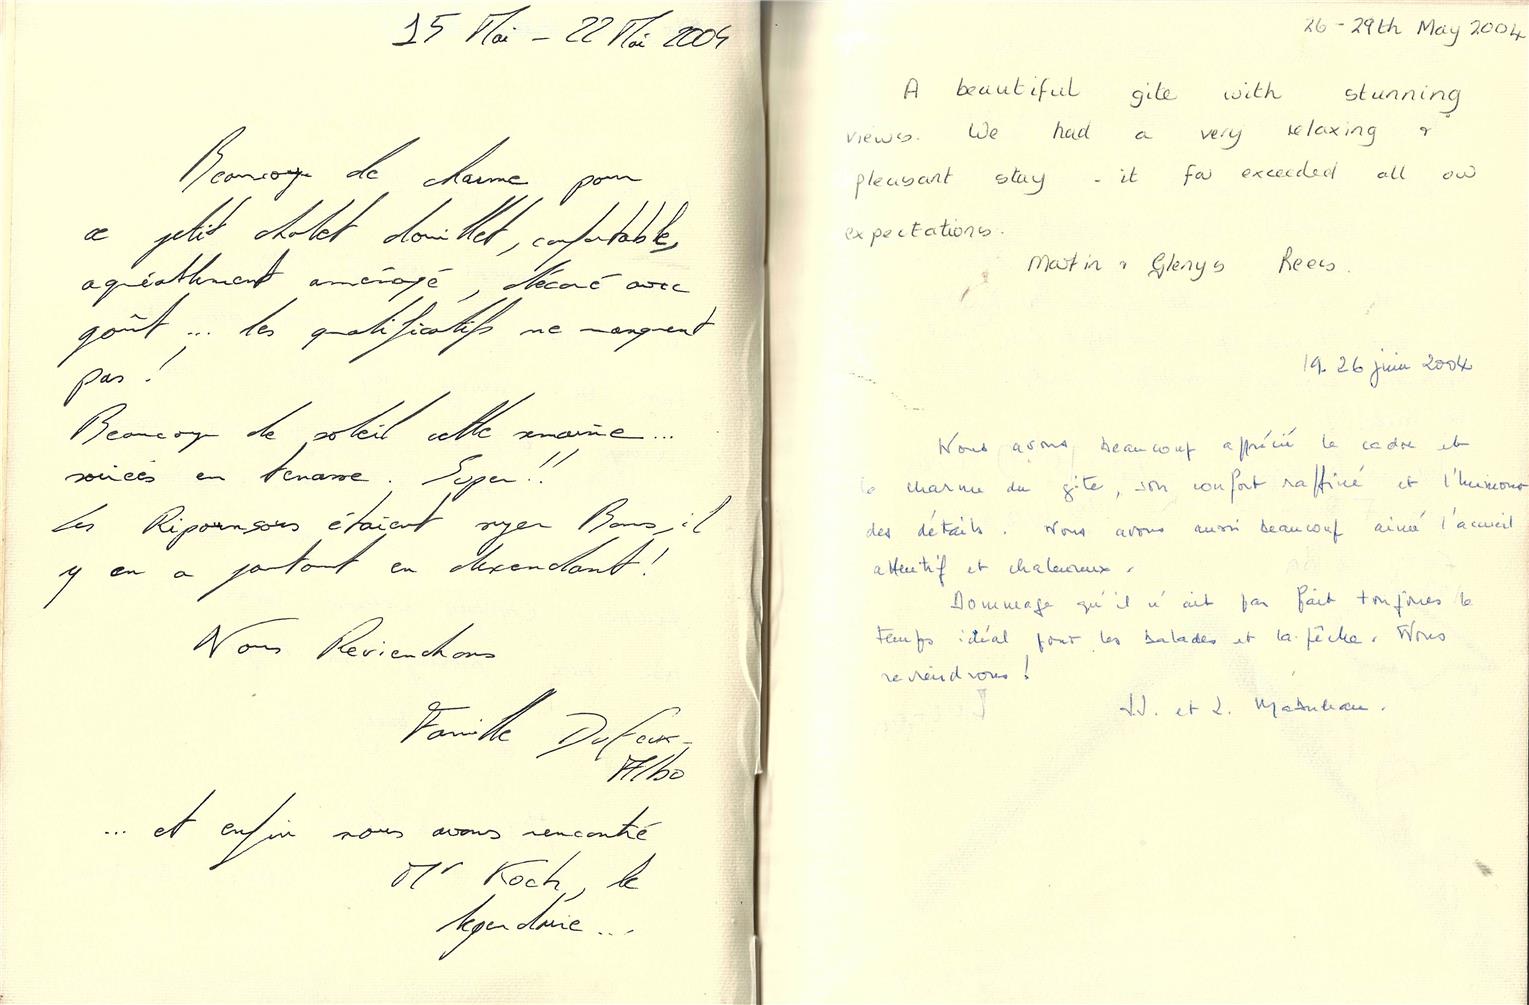 15 Mai - 22 Mai 2004
Beaucoup de charme pour
ce petit chalet douillet, confortable,
agréablement aménagé, décoré avec
goût ... les qualificatifs ne manquent
pas !
Beaucoup de soleil cette semaine ...
soirées en terrasse. Super !!
Les étaient super Bons, il
y en a partout en descendant !
Nous Reviendrons
Famille Dufaux-
Albo
... et enfin nous avons rencontré
Mr Koch, le
légendaire ...
26 - 29th May 2004
A beautiful gite with stunning
views. We had a very relaxing &
pleasant stay - it far exceeded all our
expectations.
Martin & Glenys Rees.
19. 26 juin 2004
Nous avons beaucoup apprécié le cadre et
le charme du gîte, son confort raffiné et l'humour
des détails. Nous avons aussi beaucoup aimé l'accueil
attentif et chaleureux.
Dommage qu'il n'ait pas fait toujours le
temps idéal pour les balades et la pêche. Nous
reviendrons !
J.J. et L.